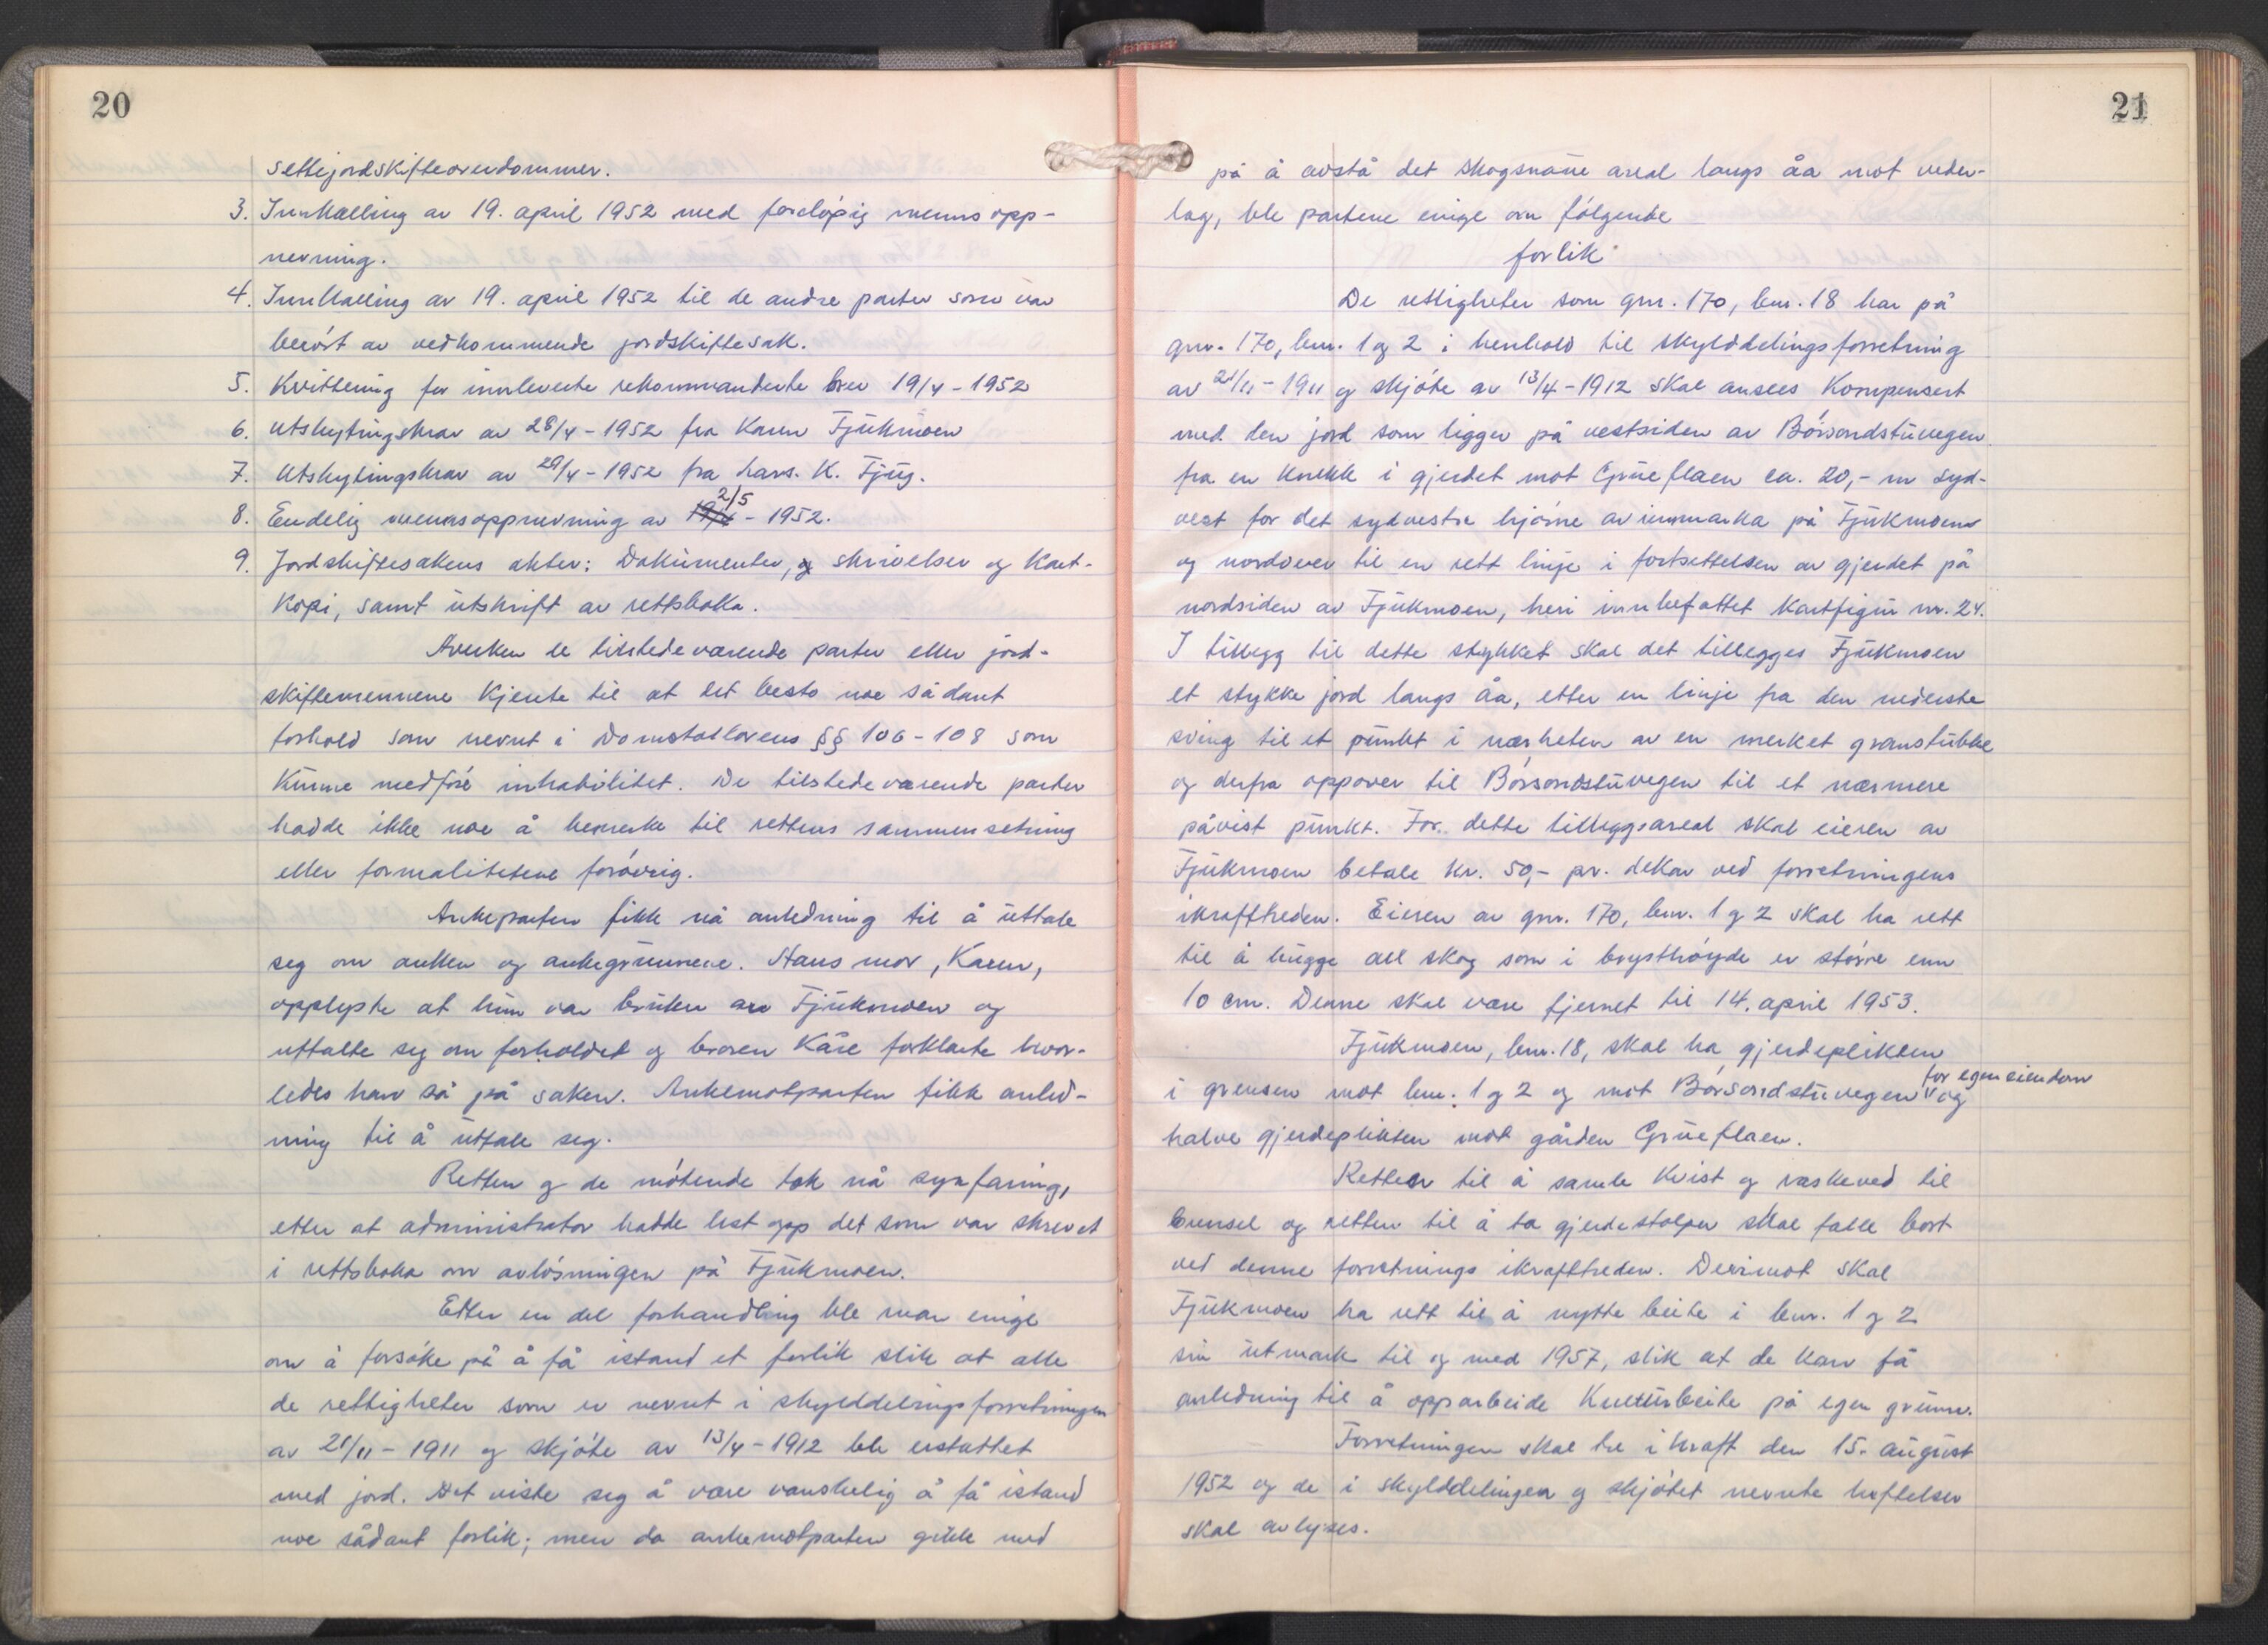 20
settejordskifteoverdommer.
3. Innkalling av 19. april 1952 med foreløpig mennsopp-
nevning.
4. Innkalling av 19. april 1952 til de andre parter som var
berørt av vedkommende jordskiftesak.
5. Kvittering for innleverte rekommanderte brev 19/4 - 1952
6. Utskytingskrav av 28/4 - 1952 fra Karen Fjukmoen
7. Utskytingskrav av 29/4 - 1952 fra Lars. K. Fjug.
2/5
8. Endelig mennsoppnevning av 19/4 - 1952.
9. Jordskiftesakens akter: Dokumenter, og skrivelser og Kart-
kopi, samt utskrift av rettsboka.
Hverken de tilstedeværende parter eller jord-
skiftemennene kjente til at det besto noe sådant
forhold som nevnt i Domstollovens §§ 106 - 108 som
kunne medføre inhabilitet. De tilstedeværende parter
hadde ikke noe å bemerke til rettens sammensetning
eller formalitetene forøvrig.
Ankeparten fikk nå anledning til å uttale
seg om anken og ankegrunnene. Hans mor, Karen,
opplyste at hun var bruker av Fjukmoen og
uttalte seg om forholdet og broren Kåre forklarte hvor-
ledes han så på saken. Ankemotparten fikk anled-
ning til å uttale seg.
Retten og de møtende tok nå synfaring,
etter at administrator hadde lest opp det som var skrevet
i rettsboka om avløsningen på Fjukmoen.
Etter en del forhandling ble man enige
om å forsøke på å få istand et forlik slik at alle
de rettigheter som er nevnt i skylddelingsforretningen
av 21/11 - 1911 og skjøte av 13/4 - 1912 ble erstattet
med jord. Det viste seg å være vanskelig å få istand
noe sådant forlik; men da ankemotparten gikk med
21
på å avstå det skogsnaue areal langs åa mot veder-
lag, ble partene enige om følgende
forlik
De rettigheter som gnr. 170, bnr. 18 har på
gnr. 170, bnr. 1 og 2 i henhold til skylddelingsforretning
av 21/11 - 1911 og skjøte av 13/4 - 1912 skal ansees kompensert
med den jord som ligger på vestsiden av Børsondstuvegen
fra en knekk i gjerdet mot Grueflaen ca. 20,- m syd-
vest for det sydvestre hjørne av innmarka på Fjukmoen
og nordover til en rett linje i fortsettelsen av gjerdet på
nordsiden av Fjukmoen, heri innbefattet kartfigur nr. 24.
I tillegg til dette stykket skal det tillegges Fjukmoen
et stykke jord langs åa, etter en linje fra den nederste
sving til et punkt i nærheten av en merket granstubbe
og derfra oppover til Børsondstuvegen til et nærmere
påvist punkt. For dette tilleggsareal skal eieren av
Fjukmoen betale kr. 50,- pr. dekar ved forretningens
ikrafttreden. Eieren av gnr. 170, bnr. 1 og 2 skal ha rett
til å hugge all skog som i brysthøyde er større enn
10 cm. Denne skal være fjernet til 14. april 1953.
Fjukmoen, bnr. 18, skal ha gjerdeplikten
for egen eiendom
i grensen mot bnr. 1 og 2 og mot Børsondstuvegen og
halve gjerdeplikten mot gården Grueflaen.
Retten til å samle kvist og raskeved til
brensel og retten til å ta gjerdestolper skal falle bort
ved denne forretnings ikrafttreden. Derimot skal
Fjukmoen ha rett til å nytte beite i bnr. 1 og 2
sin utmark til og med 1957, slik at de kan få
anledning til å opparbeide Kulturbeite på egen grunn.
Forretningen skal tre i kraft den 15. august
1952 og de i skylddelingen og skjøtet nevnte heftelser
skal avlyses.